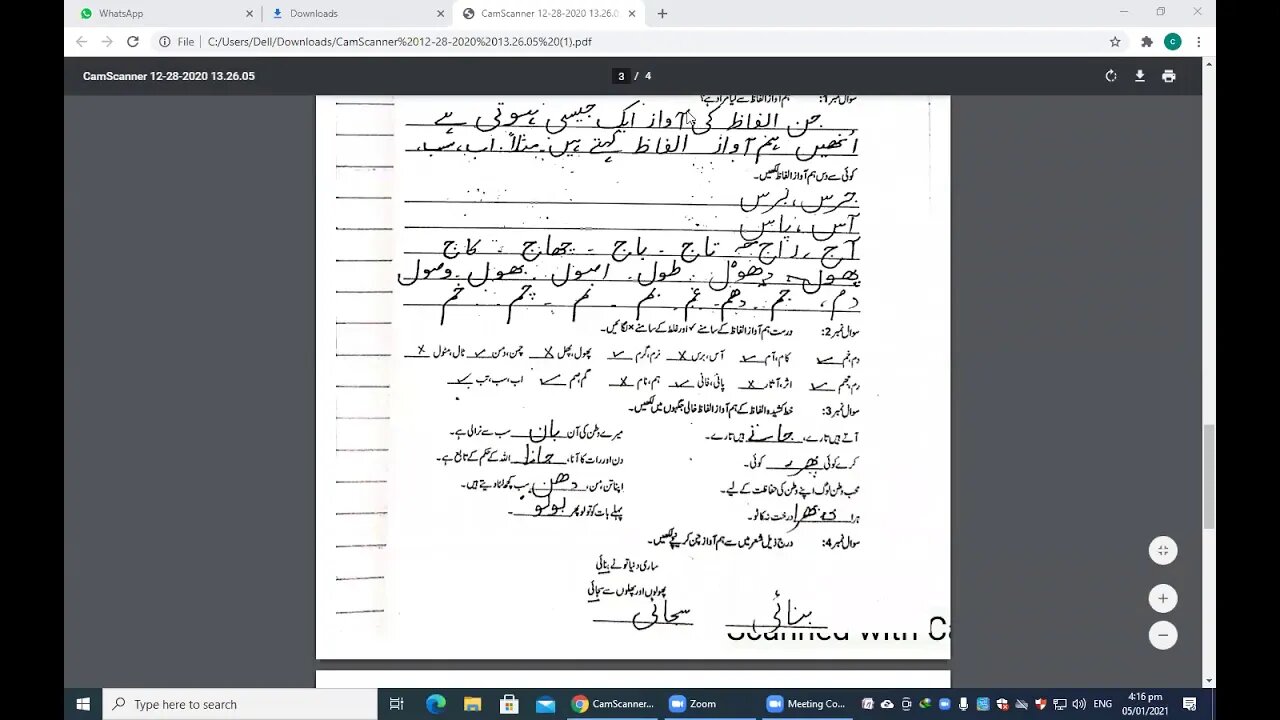 WhatsApp
Downloads
CamScanner 12-28-2020 13.26.0
File C:/Users/Dell/Downloads/CamScanner%2012-28-2020%2013.26.05%20(1).pdf
CamScanner 12-28-2020 13.26.05
3 / 4
سوال نمبر 1: ہم آواز الفاظ سے کیا مراد ہے؟
جن الفاظ کی آواز ایک جیسی ہوتی ہے
اُنھیں ہم آواز الفاظ کہتے ہیں۔ مثلاً: اب، سب،
کوئی سے دس ہم آواز الفاظ لکھیں۔
جرس، برس
آس، پاس
آج، راج تاج - باج - چھاج - کاج
پھول دھول طول اصول بھول وصول
دم، جم دھم غم بم نم چم خم
سوال نمبر 2: درست ہم آواز الفاظ کے سامنے ✓ اور غلط کے سامنے × لگائیں۔
دم، نم ✓ کام، آم ✓ آس، برس × نرم، گرم ✓ پھول، پھل × چمن، دمن ✓ ٹال، مٹول ×
دم، چھم ✓ اثر، آثار × پانی، فانی ✓ ہم، نام × گم، صم ✓ اب، سب، تب ✓
سوال نمبر 3: خط کشیدہ الفاظ کے ہم آواز الفاظ خالی جگہوں میں لکھیں۔
آتے ہیں تارے، جاتے ہیں تارے۔ میرے وطن کی آن بان سب سے نرالی ہے۔
کرے کوئی بھرے کوئی۔ دن اور رات کا آنا، جانا اللہ کے حکم کے تابع ہے۔
محب وطن لوگ اپنے وطن کی حفاظت کے لیے۔ اپنا تن، من، دھن سب کچھ لٹا دیتے ہیں۔
ہرا بھرا درخت نہ کاٹو۔ پہلے بات کو تولو پھر بولو۔
سوال نمبر 4: درج ذیل شعر میں سے ہم آواز چن کر نیچے لکھیں۔
ساری دنیا تو نے بنائی
پھولوں اور پھلوں سے سجائی
بنائی سجائی
Scanned with Ca
Type here to search
CamScanner...
Zoom
Meeting Co...
ENG
4:16 pm
05/01/2021